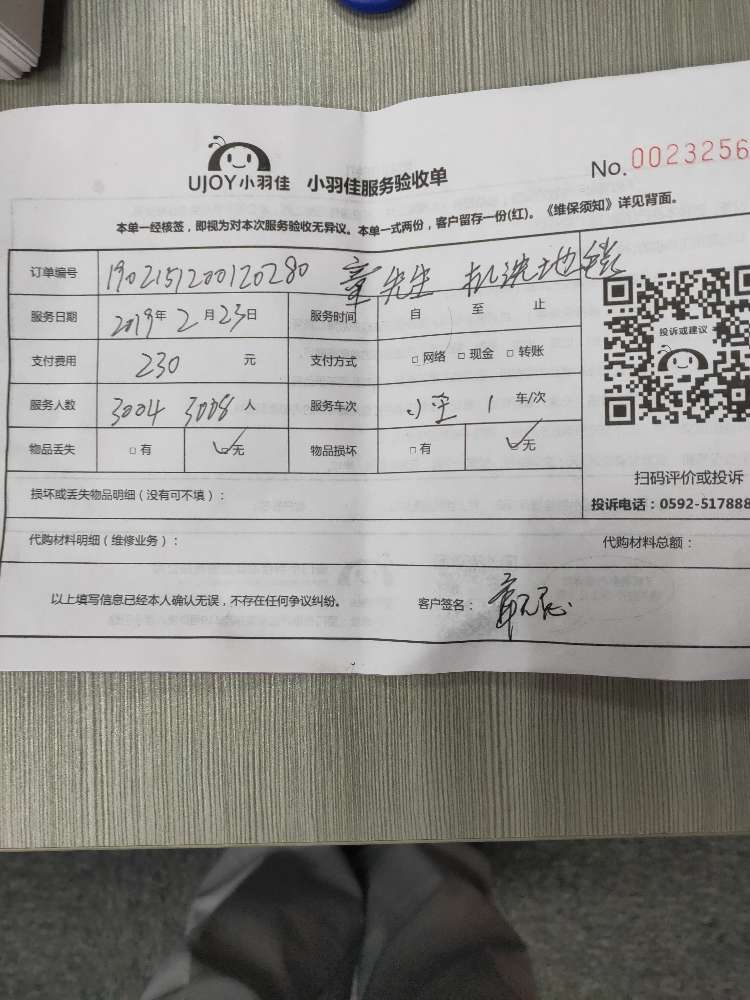 UJOY小羽佳 小羽佳服务验收单 No. 0023256
本单一经核签，即视为对本次服务验收无异议。本单一式两份，客户留存一份(红)。《维保须知》详见背面。
订单编号 1902151200120280 章先生 机洗地毯
服务日期 2019年2月23日 服务时间 自 至 止
支付费用 230 元 支付方式 □网络 □现金 □转账
投诉或建议
服务人数 3004 3008 人 服务车次 1 车/次
物品丢失 □有 □无 物品损坏 □有 □无
扫码评价或投诉
损坏或丢失物品明细（没有可不填）：
投诉电话：0592-517888
代购材料明细（维修业务）： 代购材料总额：
以上填写信息已经本人确认无误，不存在任何争议纠纷。 客户签名：